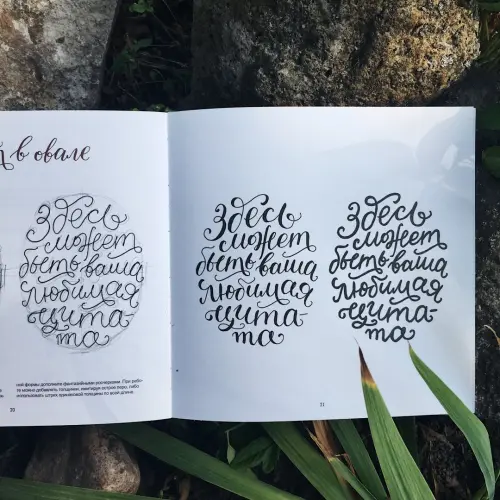 в овале
Здесь
может
быть ваша
любимая
цита-
та
ной формы дополните фантазийными росчерками. При рабо-
те можно добавлять толщины, имитируя острое перо, либо
использовать штрих одинаковой толщины по всей длине.
30
Здесь
может
быть ваша
любимая
цита-
та
Здесь
может
быть ваша
любимая
цита-
та
31